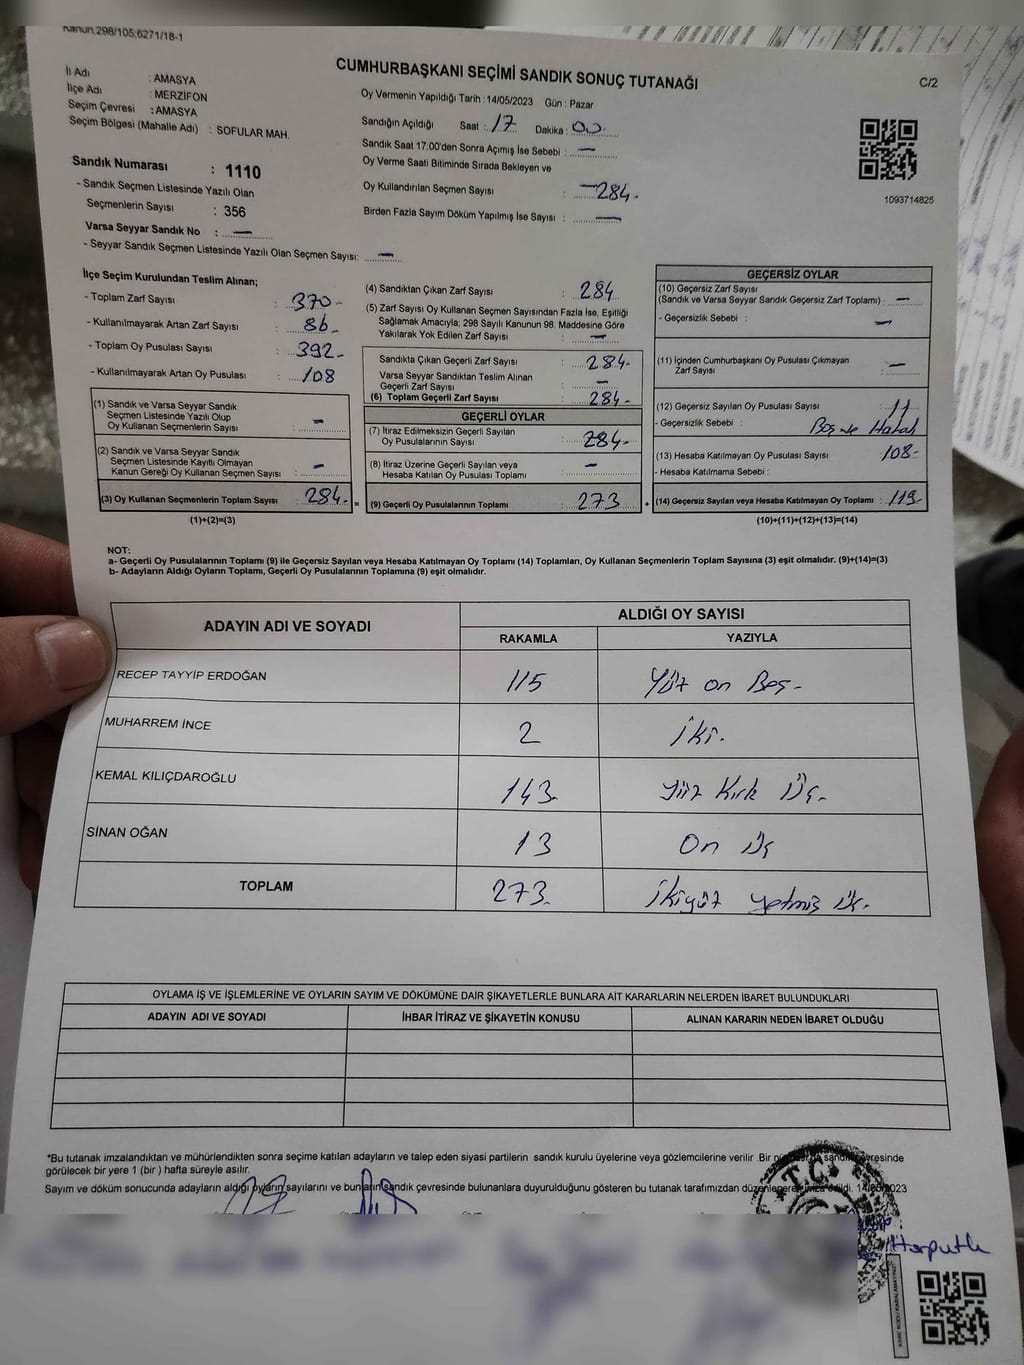 Kanun,298/105;6271/18-1
CUMHURBAŞKANI SEÇİMİ SANDIK SONUÇ TUTANAĞI
C/2
İl Adı : AMASYA
İlçe Adı : MERZİFON
Seçim Çevresi : AMASYA
Seçim Bölgesi (Mahalle Adı) : SOFULAR MAH.
Sandık Numarası : 1110
- Sandık Seçmen Listesinde Yazılı Olan
Seçmenlerin Sayısı : 356
Varsa Seyyar Sandık No : —
- Seyyar Sandık Seçmen Listesinde Yazılı Olan Seçmen Sayısı: —
Oy Vermenin Yapıldığı Tarih : 14/05/2023 Gün : Pazar
Sandığın Açıldığı Saat : 17 Dakika : 00
Sandık Saat 17:00'den Sonra Açımış İse Sebebi : —
Oy Verme Saati Bitiminde Sırada Bekleyen ve
Oy Kullandırılan Seçmen Sayısı : —284-
Birden Fazla Sayım Döküm Yapılmış İse Sayısı : —
1093714825
İlçe Seçim Kurulundan Teslim Alınan;
- Toplam Zarf Sayısı : 370-
- Kullanılmayarak Artan Zarf Sayısı : 86-
- Toplam Oy Pusulası Sayısı : 392-
- Kullanılmayarak Artan Oy Pusulası : 108
(1) Sandık ve Varsa Seyyar Sandık
Seçmen Listesinde Yazılı Olup
Oy Kullanan Seçmenlerin Sayısı : —
(2) Sandık ve Varsa Seyyar Sandık
Seçmen Listesinde Kayıtlı Olmayan
Kanun Gereği Oy Kullanan Seçmen Sayısı : —
(3) Oy Kullanan Seçmenlerin Toplam Sayısı : 284-
(1)+(2)=(3)
(4) Sandıktan Çıkan Zarf Sayısı : 284
(5) Zarf Sayısı Oy Kullanan Seçmen Sayısından Fazla İse, Eşitliği
Sağlamak Amacıyla; 298 Sayılı Kanunun 98. Maddesine Göre
Yakılarak Yok Edilen Zarf Sayısı : —
Sandıkta Çıkan Geçerli Zarf Sayısı : 284-
Varsa Seyyar Sandıktan Teslim Alınan
Geçerli Zarf Sayısı : —
(6) Toplam Geçerli Zarf Sayısı : 284-
GEÇERLİ OYLAR
(7) İtiraz Edilmeksizin Geçerli Sayılan
Oy Pusulalarının Sayısı : 284-
(8) İtiraz Üzerine Geçerli Sayılan veya
Hesaba Katılan Oy Pusulası Toplamı : —
= (9) Geçerli Oy Pusulalarının Toplamı : 273
GEÇERSİZ OYLAR
(10) Geçersiz Zarf Sayısı
(Sandık ve Varsa Seyyar Sandık Geçersiz Zarf Toplamı) : —
- Geçersizlik Sebebi : —
(11) İçinden Cumhurbaşkanı Oy Pusulası Çıkmayan
Zarf Sayısı : —
(12) Geçersiz Sayılan Oy Pusulası Sayısı : 11
- Geçersizlik Sebebi : Boş ve Hatalı
(13) Hesaba Katılmayan Oy Pusulası Sayısı : 108-
- Hesaba Katılmama Sebebi :
+ (14) Geçersiz Sayılan veya Hesaba Katılmayan Oy Toplamı : 119-
(10)+(11)+(12)+(13)=(14)
NOT:
a- Geçerli Oy Pusulalarının Toplamı (9) ile Geçersiz Sayılan veya Hesaba Katılmayan Oy Toplamı (14) Toplamları, Oy Kullanan Seçmenlerin Toplam Sayısına (3) eşit olmalıdır. (9)+(14)=(3)
b- Adayların Aldığı Oyların Toplamı, Geçerli Oy Pusulalarının Toplamına (9) eşit olmalıdır.
ADAYIN ADI VE SOYADI ALDIĞI OY SAYISI
RAKAMLA YAZIYLA
RECEP TAYYİP ERDOĞAN 115 Yüz on Beş-
MUHARREM İNCE 2 İki.
KEMAL KILIÇDAROĞLU 143- Yüz Kırk Üç-
SİNAN OĞAN 13 On Üç
TOPLAM 273- İkiyüz yetmiş üç-
OYLAMA İŞ VE İŞLEMLERİNE VE OYLARIN SAYIM VE DÖKÜMÜNE DAİR ŞİKAYETLERLE BUNLARA AİT KARARLARIN NELERDEN İBARET BULUNDUKLARI
ADAYIN ADI VE SOYADI İHBAR İTİRAZ VE ŞİKAYETİN KONUSU ALINAN KARARIN NEDEN İBARET OLDUĞU
*Bu tutanak imzalandıktan ve mühürlendikten sonra seçime katılan adayların ve talep eden siyasi partilerin sandık kurulu üyelerine veya gözlemcilerine verilir .Bir nüshası da sandık çevresinde
görülecek bir yere 1 (bir ) hafta süreyle asılır.
Sayım ve döküm sonucunda adayların aldığı oyların sayılarını ve bunların sandık çevresinde bulunanlara duyurulduğunu gösteren bu tutanak tarafımızdan düzenlenerek imza edildi. 14/05/2023
T.C.
Harputlu